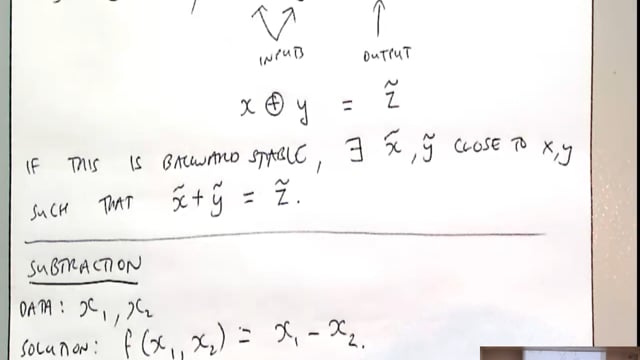 INPUTS OUTPUT
x ⊕ y = z̃
IF THIS IS BACKWARD STABLE, ∃ x̃, ỹ CLOSE TO x, y
SUCH THAT x̃ + ỹ = z̃.
SUBTRACTION
DATA: x₁, x₂
SOLUTION: f(x₁, x₂) = x₁ - x₂.